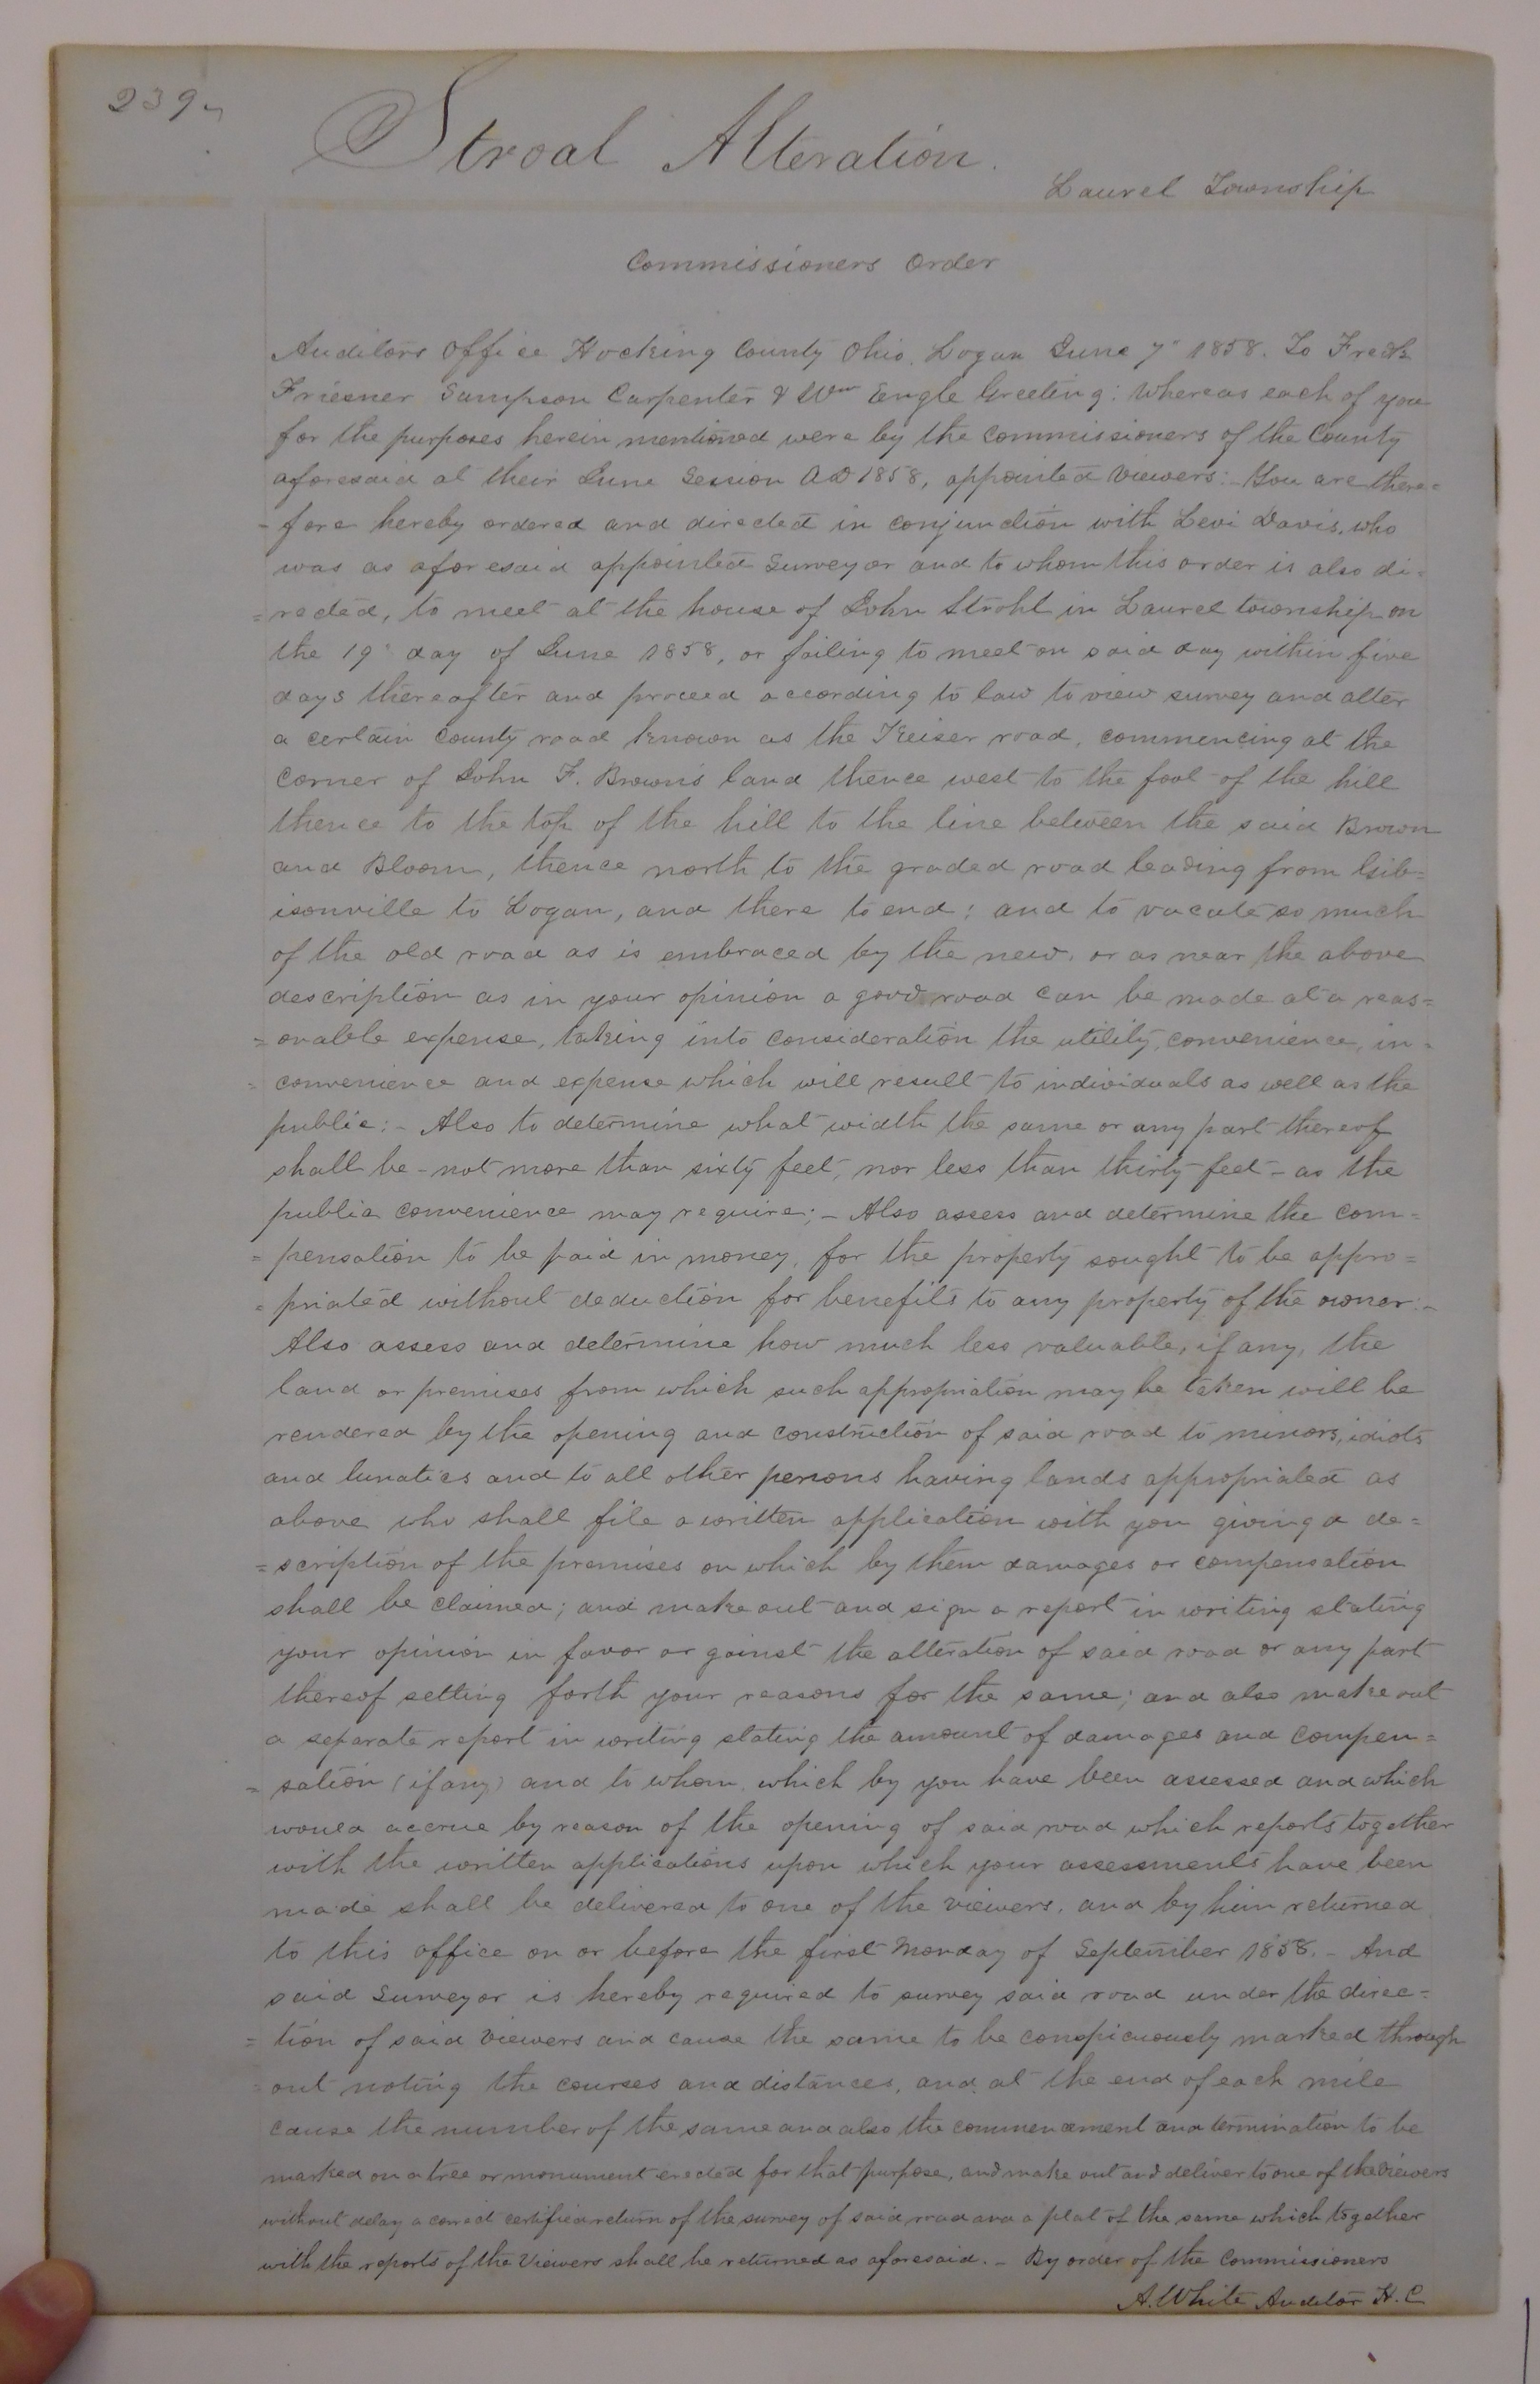 239
Stroal Alteration.
Laurel Township
Commissioners Order
Auditors Office Hocking County Ohio. Logan June 7" 1858. To Fredk
Friesner Sampson Carpenter & Wm Engle Greeting: Whereas each of you
for the purposes herein mentioned were by the Commissioners of the County
aforesaid at their June Session AD 1858, appointed viewers:- You are there=
=fore hereby ordered and directed in conjunction with Levi Davis, who
was as aforesaid appointed Surveyor and to whom this order is also di=
=rected, to meet at the house of John Strohl in Laurel township on
the 19" day of June 1858, or failing to meet on said day within five
days thereafter and proceed according to law to view survey and alter
a certain County road known as the Keiser road, commencing at the
corner of John F. Brown's land thence west to the foot of the hill
thence to the top of the hill to the line between the said Brown
and Bloom, thence north to the graded road leading from Gib=
isonville to Logan, and there to end; and to vacate so much
of the old road as is embraced by the new, or as near the above
description as in your opinion a good road can be made at a reas=
=onable expense, taking into consideration the utility, convenience, in=
=convenience and expense which will result to individuals as well as the
public:- Also to determine what width the same or any part thereof
shall be - not more than sixty feet, nor less than thirty feet - as the
public convenience may require;- Also assess and determine the com=
=pensation to be paid in money, for the property sought to be appro=
=priated without deduction for benefits to any property of the owner:-
Also assess and determine how much less valuable, if any, the
land or premises from which such appropriation may be taken will be
rendered by the opening and construction of said road to minors, idiots
and lunatics and to all other persons having lands appropriated as
above who shall file a written application with you giving a de=
=scription of the premises on which by them damages or compensation
shall be claimed; and make out and sign a report in writing stating
your opinion in favor or gainst the alteration of said road or any part
thereof setting forth your reasons for the same; and also make out
a separate report in writing stating the amount of damages and compen=
=sation (if any) and to whom, which by you have been assessed and which
would accrue by reason of the opening of said road which reports together
with the written applications upon which your assessments have been
made shall be delivered to one of the viewers, and by him returned
to this office on or before the first Monday of September 1858. - And
said Surveyor is hereby required to survey said road under the direc=
=tion of said Viewers and cause the same to be conspicuously marked through
=out noting the courses and distances, and at the end of each mile
cause the number of the same and also the commencement and termination to be
marked on a tree or monument erected for that purpose, and make out and deliver to one of the viewers
without delay a correct certified return of the survey of said road and a plat of the same which together
with the reports of the Viewers shall be returned as aforesaid. - By order of the Commissioners
A. White Auditor H. C